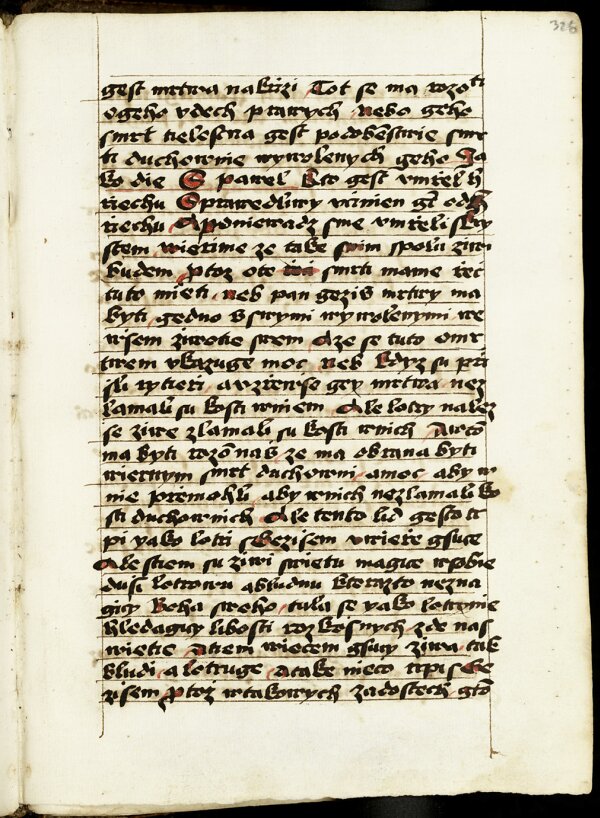 328
gest mrtwa na krzizi Tot se ma rozo ti
o geho vdech prawych nebo geho
smrt tielestna gest podobenstwie smr
ti duchownie wywolenych geho Ja
ko die S pawel Kto gest vmrzel h
rziechu Sprawedliwy vcinien gt od h
rziechu A poniewadz sme vmrzeli s kry
stem wierzime ze take s nim spolu ziwi
budem ptoz o te smrti mame rzec
tuto mieti neb pan gezis mrtwy ma
byti gedno s swymi wywolenymi we
wsem ziwotie swem A ze se tuto o mr
twem vkazuge moc neb kdyz su przi
sli rytierzi a vzrzewse gey mrtwa nez
lamali su kosti w niem Ale lotry nalez
se ziwe zlamali su kosti w nich A w to
ma byti rozo nas ze ma obrana byti
wiernym smrt duchowni a moc aby w
nie przemohli aby w nich nezlamali ko
sti duchownich Ale tento lid gesto tr
pi yako lotrzi s gezisem v wierze gsuce
Ale s tiem su ziwi swietu magice w sobie
dusi lotrowu a bludnu ktorzizto nezna
gicy Boha sweho tula se yako lotrowie
hledagicy libosti rozkosnych zde na s
wietie A tiem wiecem gsucy ziwa tak
bludi a lotruge A take nieco trpi s ge
zisem ptoz w takowych zadostech gto